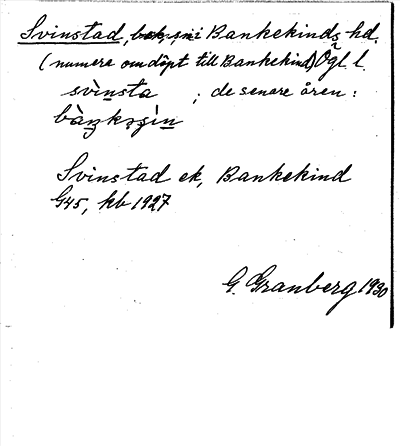 Svinstad, sn i Bankekinds hd.
(numera omdöpt till Bankekind) Ögl. l.
svìnsta ; de senare åren:
bàŋkəṣìn
Svinstad ek, Bankekind
G45, kb 1927
G. Granberg 1930